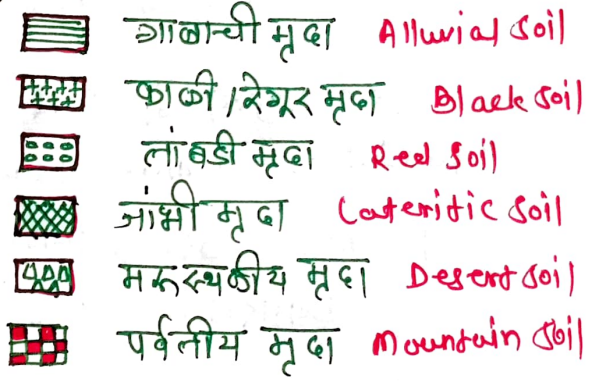 गाळाची मृदा Alluvial Soil
काळी / रेगूर मृदा Black Soil
तांबडी मृदा Red Soil
जांभी मृदा Lateritic Soil
मरुस्थळीय मृदा Desert Soil
पर्वतीय मृदा Mountain Soil